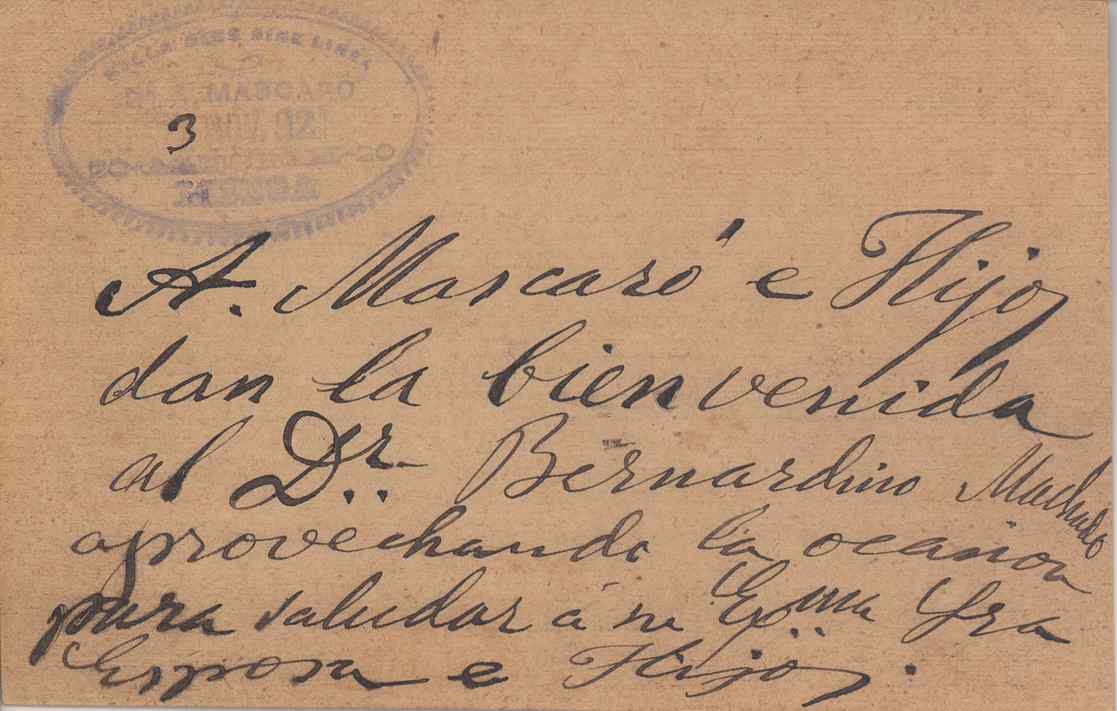 A. MASCARO
3
A. Mascaró e Hijos
dan la bienvenida
al Dr. Bernardino Machado
aprovechando la ocasion
para saludar á su Exma Sra
Esposa e Hijos.